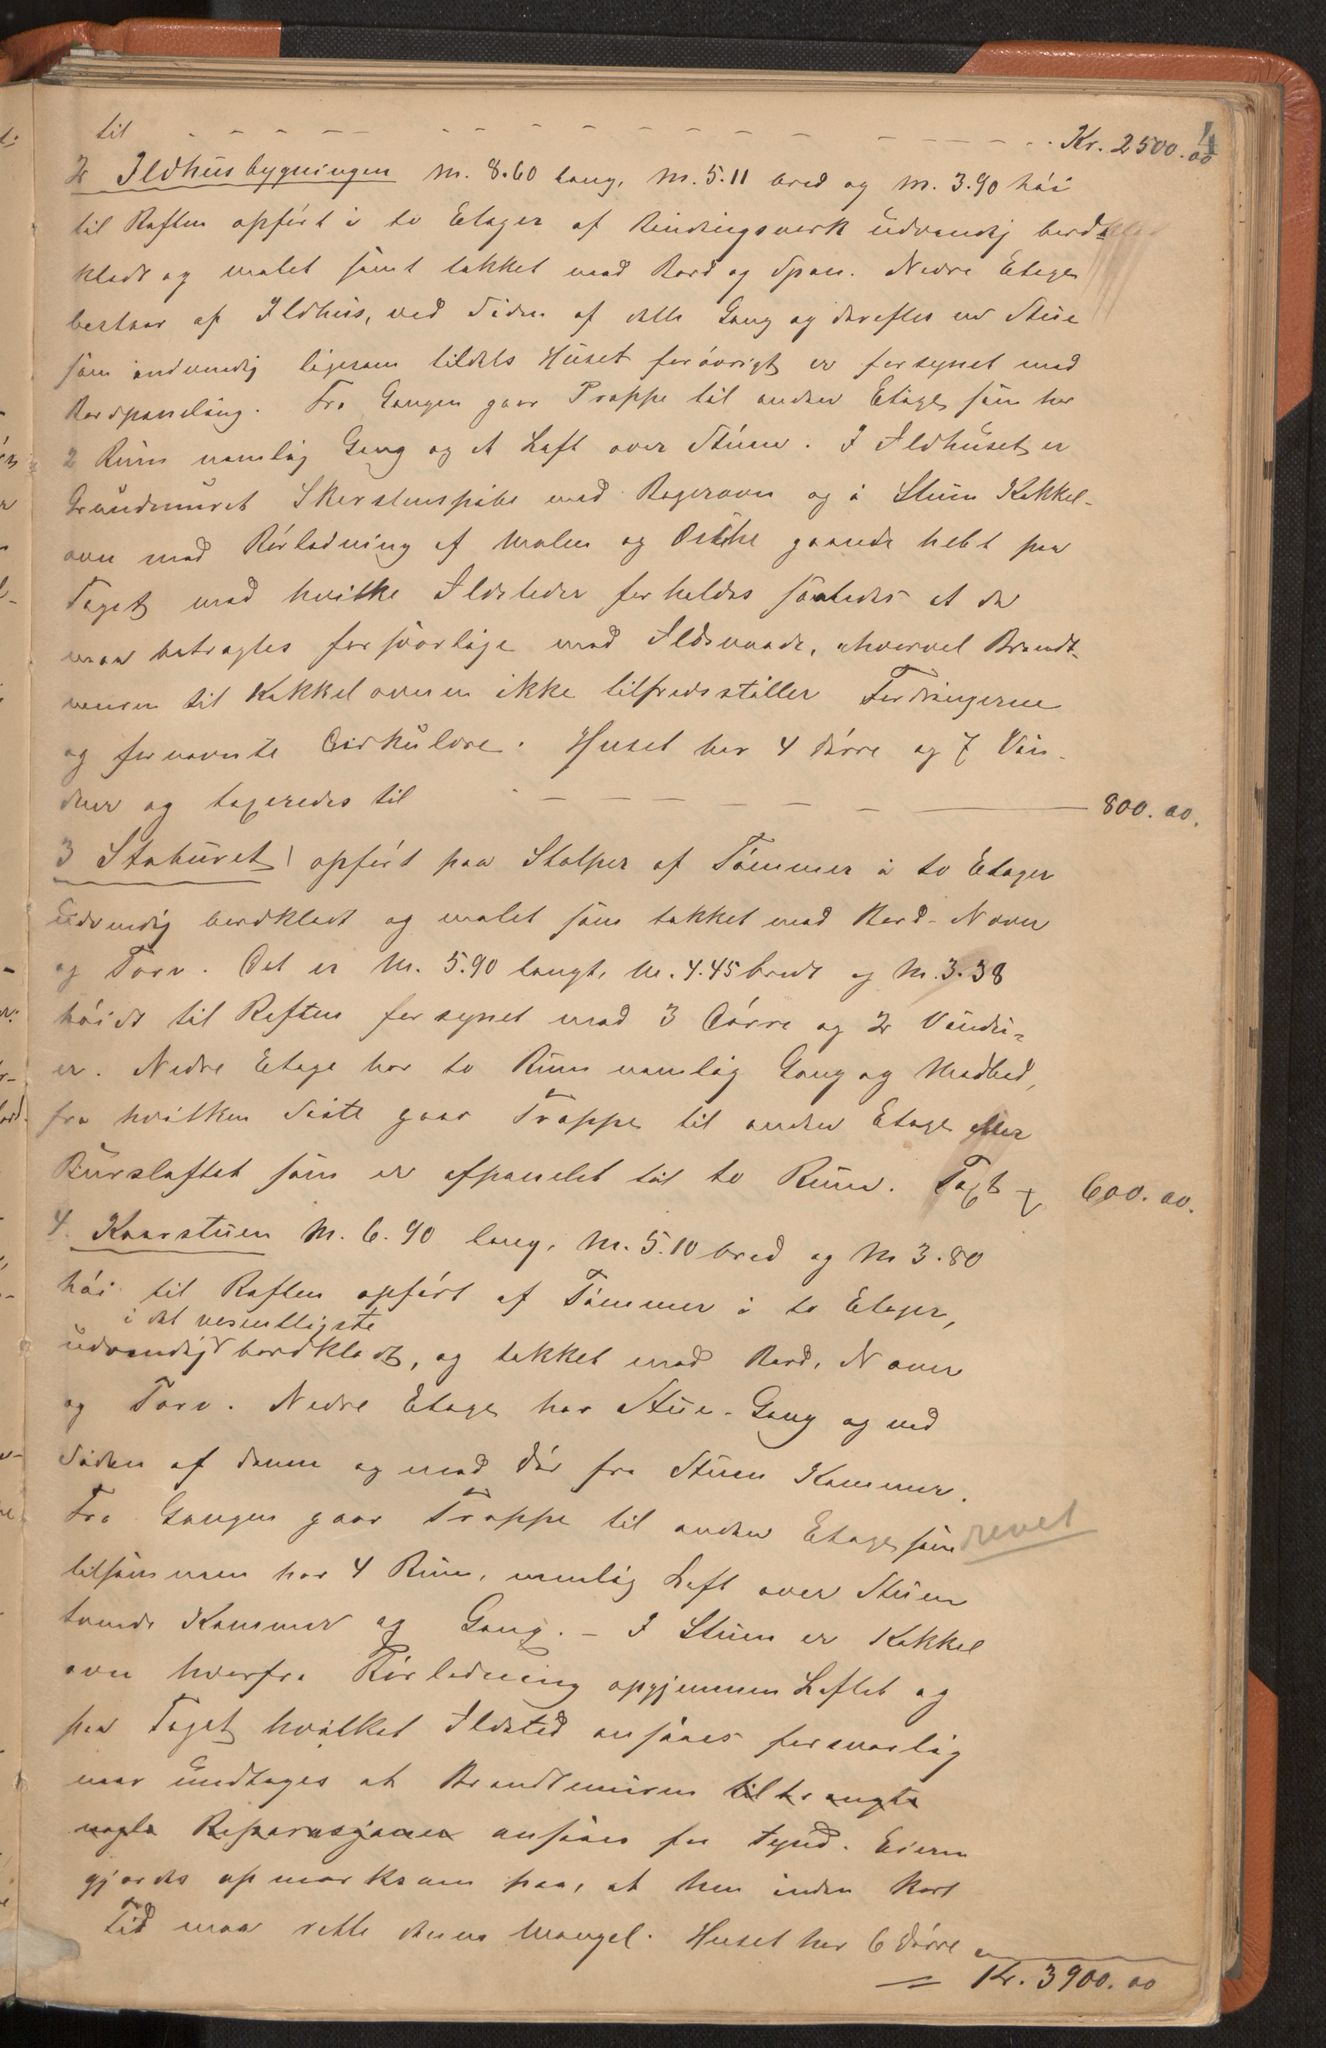 4
til - - - - - - - - - - - - - - - Kr. 2500.00
2 Ildhusbygningen M. 8.60 lang, M. 5.11 bred og M. 3.90 høi
til Raften opført i to Etager af Bindingsverk udvendig bord-
klædt og malet samt tækket med Bord og Spon. Nedre Etage
bestaar af Ildhus, ved Siden af dette Gang og derefter en Stue
som indvendig ligesom tildels Huset forøvrigt er forsynet med
Bordpaneling. Fra Gangen gaar Trappe til anden Etage som har
2 Rum nemlig Gang og et Loft over Stuen. I Ildhuset er
Grundmuret Skorstenspibe med Bagerovn og i Stuen Kakkel-
ovn med Rørledning af Malm og gaaende helt paa
Taget med hvilke Ildsteder forholdes saaledes at de
maa betragtes forsvarlige mod Ildsvaade, ihvorvel Brandt-
muren til Kakkelovnen ikke tilfredsstiller Fordringerne
og fornævnte Cirkulære. Huset har 4 Dørre og 7 Vin-
duer og taxeredes til - - - - - - - 800.00.
3 Staburet opført paa Stolper af Tømmer i to Etager
udvendig bordklædt og malet som tækket med Bord - Næver
og Torv. Det er M. 5.90 langt, M. 4.45 bredt og M. 3.38
høidt til Raften forsynet med 3 Dørre og 2 Vindu-
er. Nedre Etage har to Rum nemlig Gang og Madbod,
fra hvilken Siste gaar Trappe til anden Etage eller
Bursloftet som er afpanelet til to Rum. Taxt 600.00.
4. Kaarstuen M. 6.90 lang, M. 5.10 bred og M 3.80
høi til Raften opført af Tømmer i to Etager,
i det vesentligste
udvendig bordklædt, og tækket med Bord, Næver
og Torv. Nedre Etage har Stue - Gang og ved
Siden af denne og med Dør fra Stuen Kammer.
Fra Gangen gaar Trappe til anden Etage som
revet
tilsammen har 4 Rum, nemlig Loft over Stuen
tvende Kammer og Gang. - I Stuen er Kakkel
ovn hvorfra Rørledning opgjennem Loftet og
paa Taget hvilket Ildsted ansaaes forsvarlig
naar undtages at Brandtmuren tiltrængte
nogle Reparasjoner ansaaes for tynd. Eieren
gjordes opmærksom paa, at han inden kort
Tid maa rette denne Mangel. Huset har 6 Dørre
= Kr. 3900.00